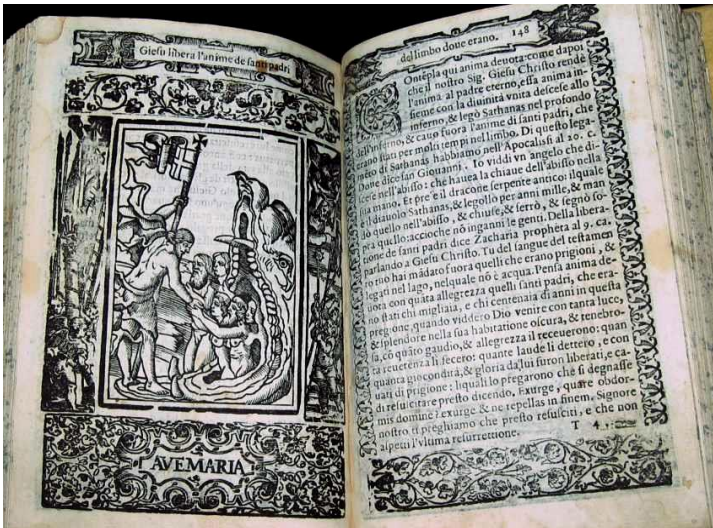 Giesu libera l'anime de santi padri
I AVEMARIA I
del limbo doue erano. 148
COntẽpla qui anima deuota: come dapoi
che il nostro Sig. Giesu Christo rendè
l'anima al padre eterno, essa anima in-
sieme con la diuinità vnita descese allo
inferno, & legò Sathanas nel profondo
dell'inferno, & cauo fuora l'anime di santi padri, che
erano stati per molti tempi nel limbo. Di questo lega-
mẽto di Sathanas habbiamo nell'Apocalissi al 20. c.
Doue dice san Giouanni. Io viddi vn'angelo che di-
scese nell'abisso: che hauea la chiaue dell'abisso nella
sua mano. Et pre e il dracone serpente antico: ilquale
e il diauolo Sathanas, & legollo per anni mille, & man
dò quello nell'abisso, & chiuse, & serrò, & segnò so-
pra quello: accioche nõ inganni le genti. Della libera-
tione de santi padri dice Zacharia propheta al 9. ca.
parlando a Giesu Christo. Tu del sangue del testamen
to tuo hai mãdato fuora quelli che erano prigioni, &
legati nel lago, nelquale nõ è acqua. Pensa anima de-
uota con quãta allegrezza quelli santi padri, che era-
no stati chi migliaia, e chi centenaia di anni in questa
pregione, quando viddero Dio venire con tanta luce,
& splendore nella sua habitatione oscura, & tenebro-
sa, cõ quãto gaudio, & allegrezza il receuerono: quan
ta reuerenza li fecero: quante laude li dettero, e con
quanta giocondità, & gloria da lui furon liberati, e ca-
uati di prigione: liquali lo pregarono che si degnasse
di resuscitare presto dicendo. Exurge, quare obdor-
mis domine? exurge & ne repellas in finem. Signore
nostro ti preghiamo che presto resusciti, e che non
aspetti l'vltima resurrettione.
T 4